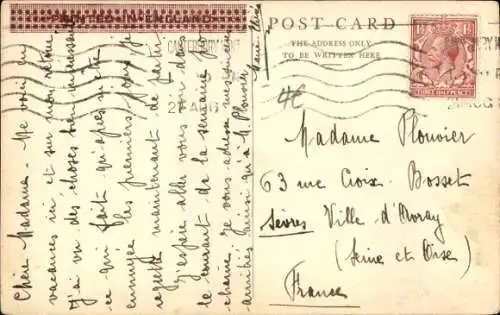 PRINTED IN ENGLAND
Chère Madame - Me voici en
vacances ici et sur mon retour.
J'ai vu des choses bien intéressantes
ce qui fait qu'après m'être
ennuyée les premiers jours je
regrette maintenant de partir.
J'espère aller vous voir dans
le courant de la semaine pro
chaine. Je vous adresse mes
amitiés ainsi qu'à M. Plouvier
POST CARD
THE ADDRESS ONLY
TO BE WRITTEN HERE
CANTERBURY
AUG
4€
THREE HALFPENCE
Madame Plouvier
63 rue Croix Bosset
Sèvres Ville d'Avray
(Seine et Oise)
France